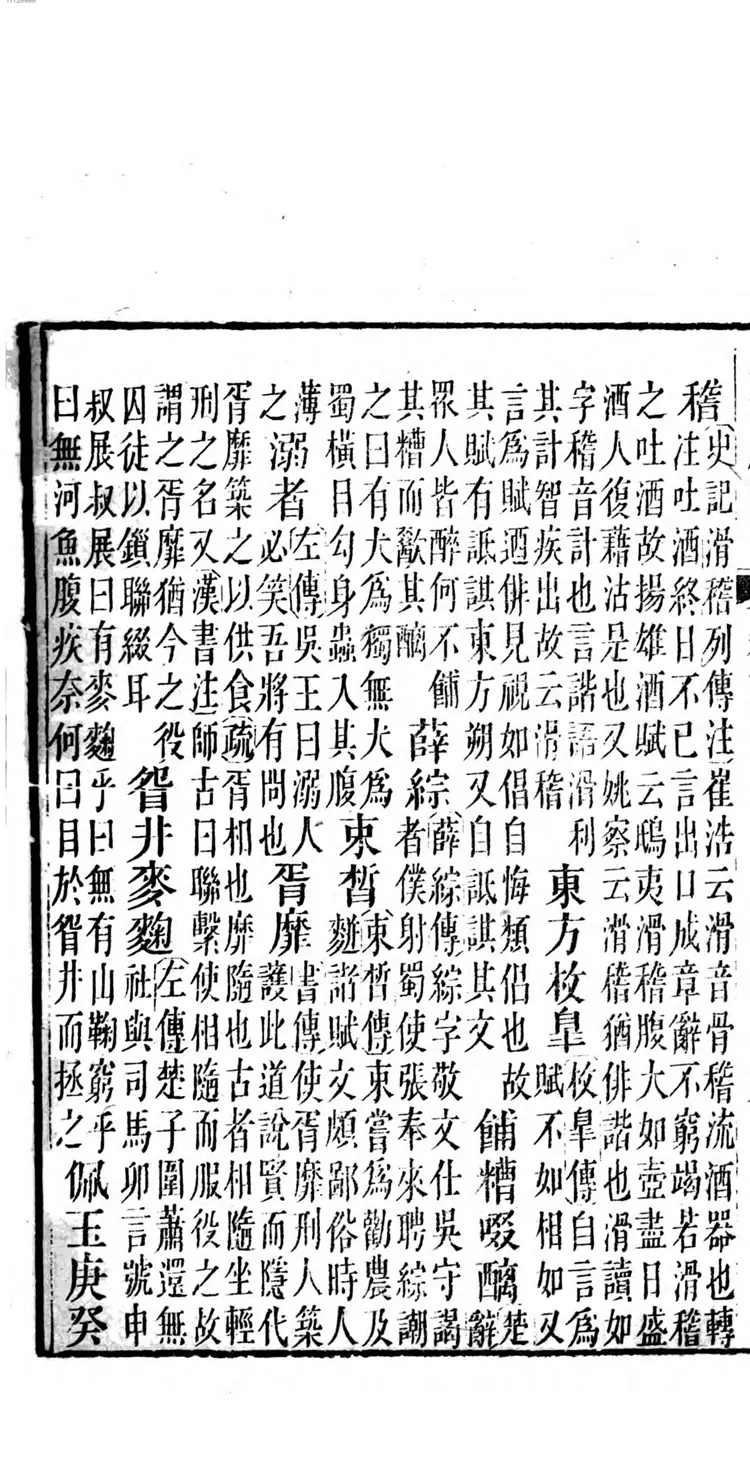 稽史記滑稽列傳注崔浩云滑音骨稽流酒器也轉注吐酒終日不已言出口成章辭不窮竭若滑稽
之吐酒故揚雄酒賦云鴟夷滑稽腹大如壺盡日盛酒人復藉沽是也又姚察云滑稽猶俳諧也滑讀如
字稽音計也言諧語滑利其計智疾出故云滑稽東方枚臯枚臯傳自言爲賦不如相如又
言爲賦迺俳見視如倡自悔類倡也故其賦有詆諆東方朔又自詆諆其文餔糟啜醨楚辭
眾人皆醉何不餔其糟而歠其醨薛綜薛綜傳綜字敬文仕吳守謁者僕射蜀使張奉來聘綜謿
之曰有犬爲獨無犬爲蜀橫目勾身蟲入其腹束晳束晳傳束嘗爲勸農及諸賦文頗鄙俗時人
薄之溺者左傳吳王曰溺人必笑吾將有問也胥靡書傳使胥靡刑人築護此道說賢而隱代
胥靡築之以供食疏胥相也靡隨也古者相隨坐輕刑之名又漢書注師古曰聯繫使相隨而服役之故
謂之胥靡猶今之役囚徒以鎖聯綴耳眢井麥麴左傳楚子圍蕭還無社與司馬卯言號申
叔展叔展曰有麥麴乎曰無有山鞠窮乎曰無河魚腹疾奈何曰目於眢井而拯之佩玉庚癸